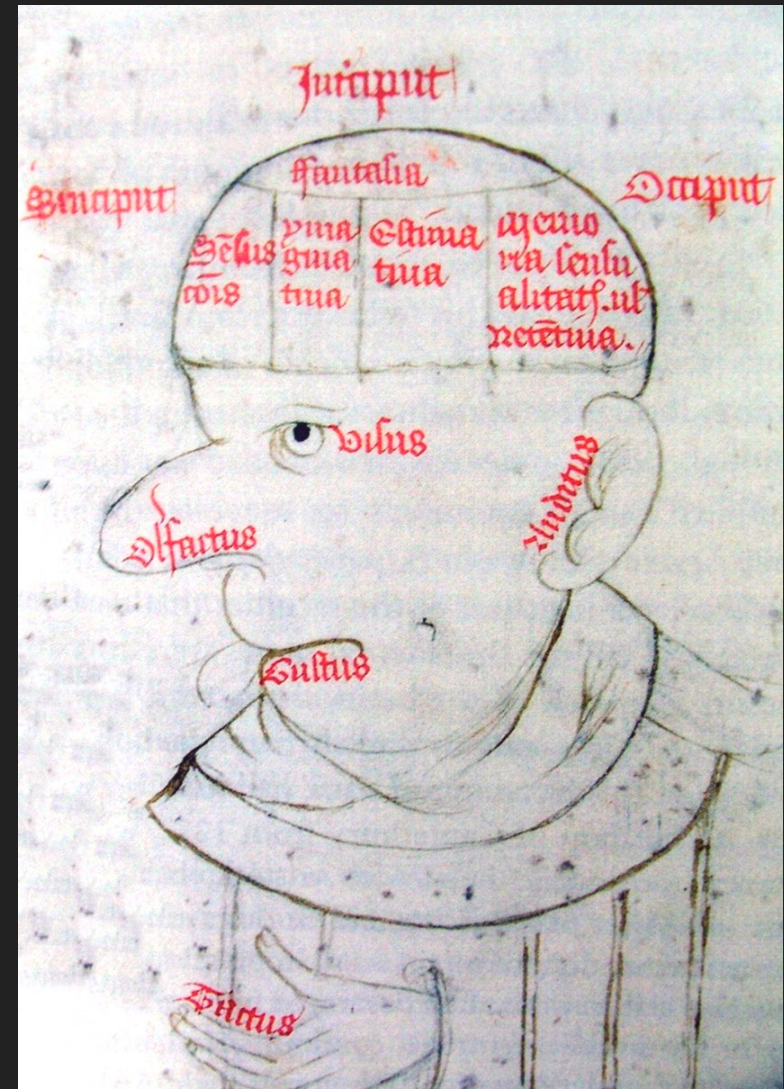 Jnciput
Sinciput
Occiput
ffantasia
Sēsus
cōis
yma
gina
tiua
Estima
tiua
Memo
ria sensu
alitatꝭ. ul
retētiua.
visus
Olfactus
Auditus
Gustus
Tactus